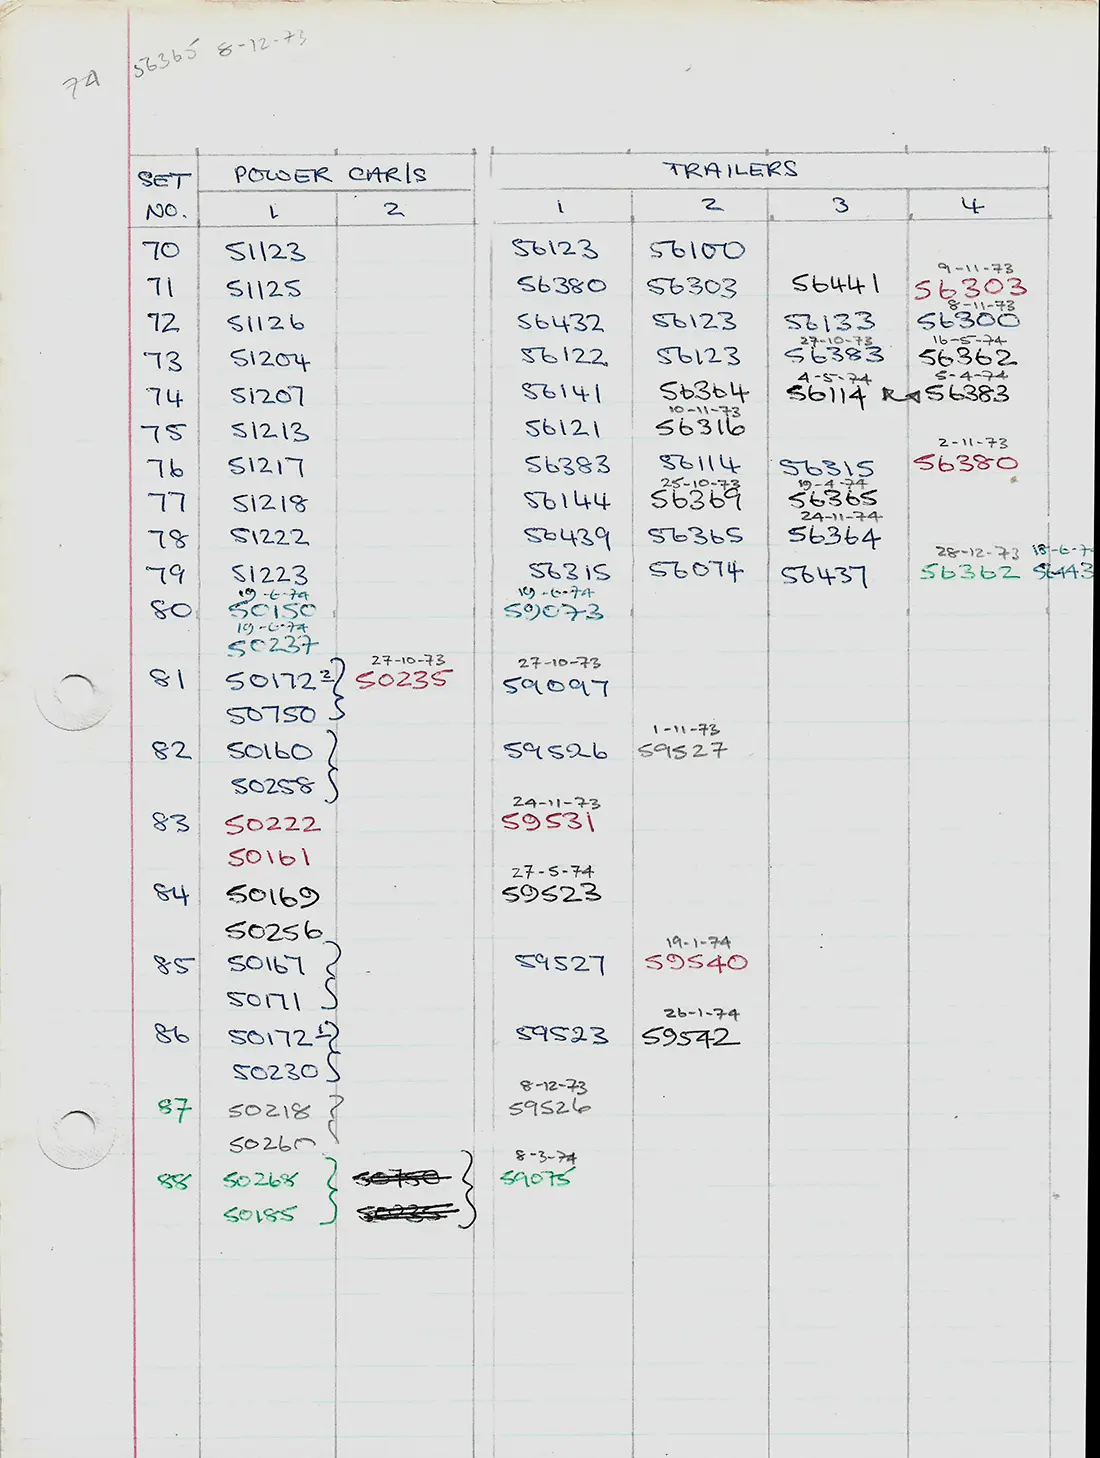 74 56365 8-12-73
SET NO. POWER CAR/S TRAILERS
1 2 1 2 3 4
70 51123 56123 56100
9-11-73
71 51125 56380 56303 56441 56303
8-11-73
72 51126 56432 56123 56133 56300
27-10-73 16-5-74
73 51204 56122 56123 56383 56362
4-5-74 5-4-74
74 51207 56141 56364 56114 56383
10-11-73
75 51213 56121 56316
2-11-73
76 51217 56383 56114 56315 56380
25-10-73 19-4-74
77 51218 56144 56369 56365
24-11-74
78 51222 56439 56365 56364
28-12-73 18-6-74
79 51223 56315 56074 56437 56362 56443
19-6-74 19-6-74
80 50150 59073
19-6-74
50237
27-10-73 27-10-73
81 50172 2 50235 59097
50750
1-11-73
82 50160 59526 59527
50258
24-11-73
83 50222 59531
50161
27-5-74
84 50169 59523
50256
19-1-74
85 50167 59527 59540
50171
26-1-74
86 50172 1 59523 59542
50230
8-12-73
87 50218 59526
50260
8-3-74
88 50268 50750 59075
50185 50235